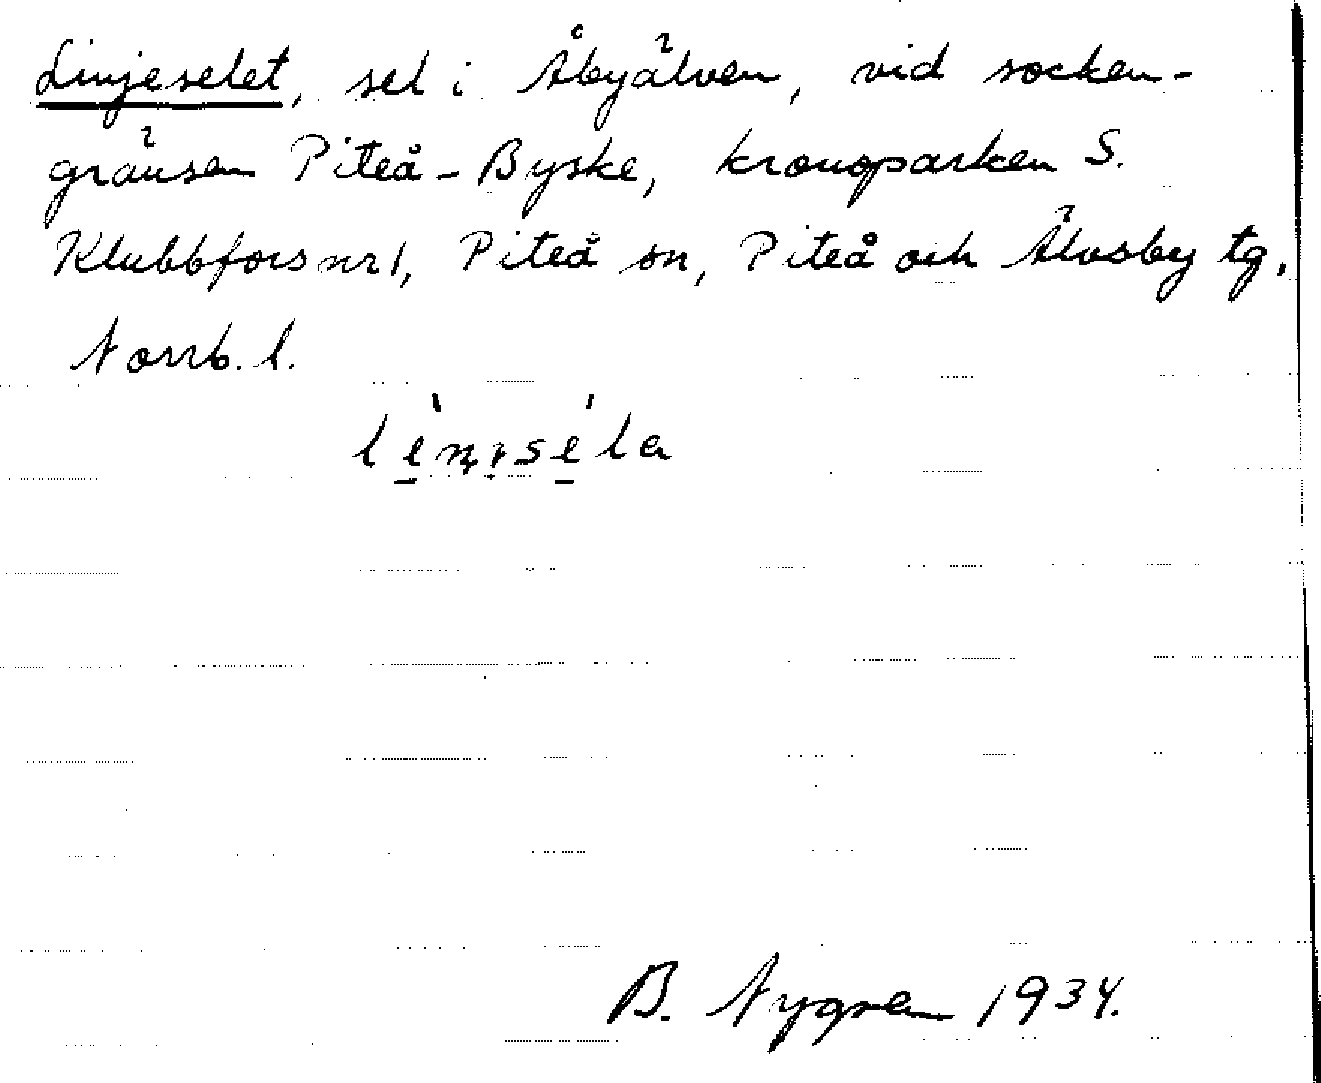 Linjeselet, sel i Åbyälven, vid socken-
gränsen Piteå - Byske, kronoparken S.
Klubbfors nr 1, Piteå sn, Piteå och Älvsby tg,
Norrb. l.
B. Nygren 1934.